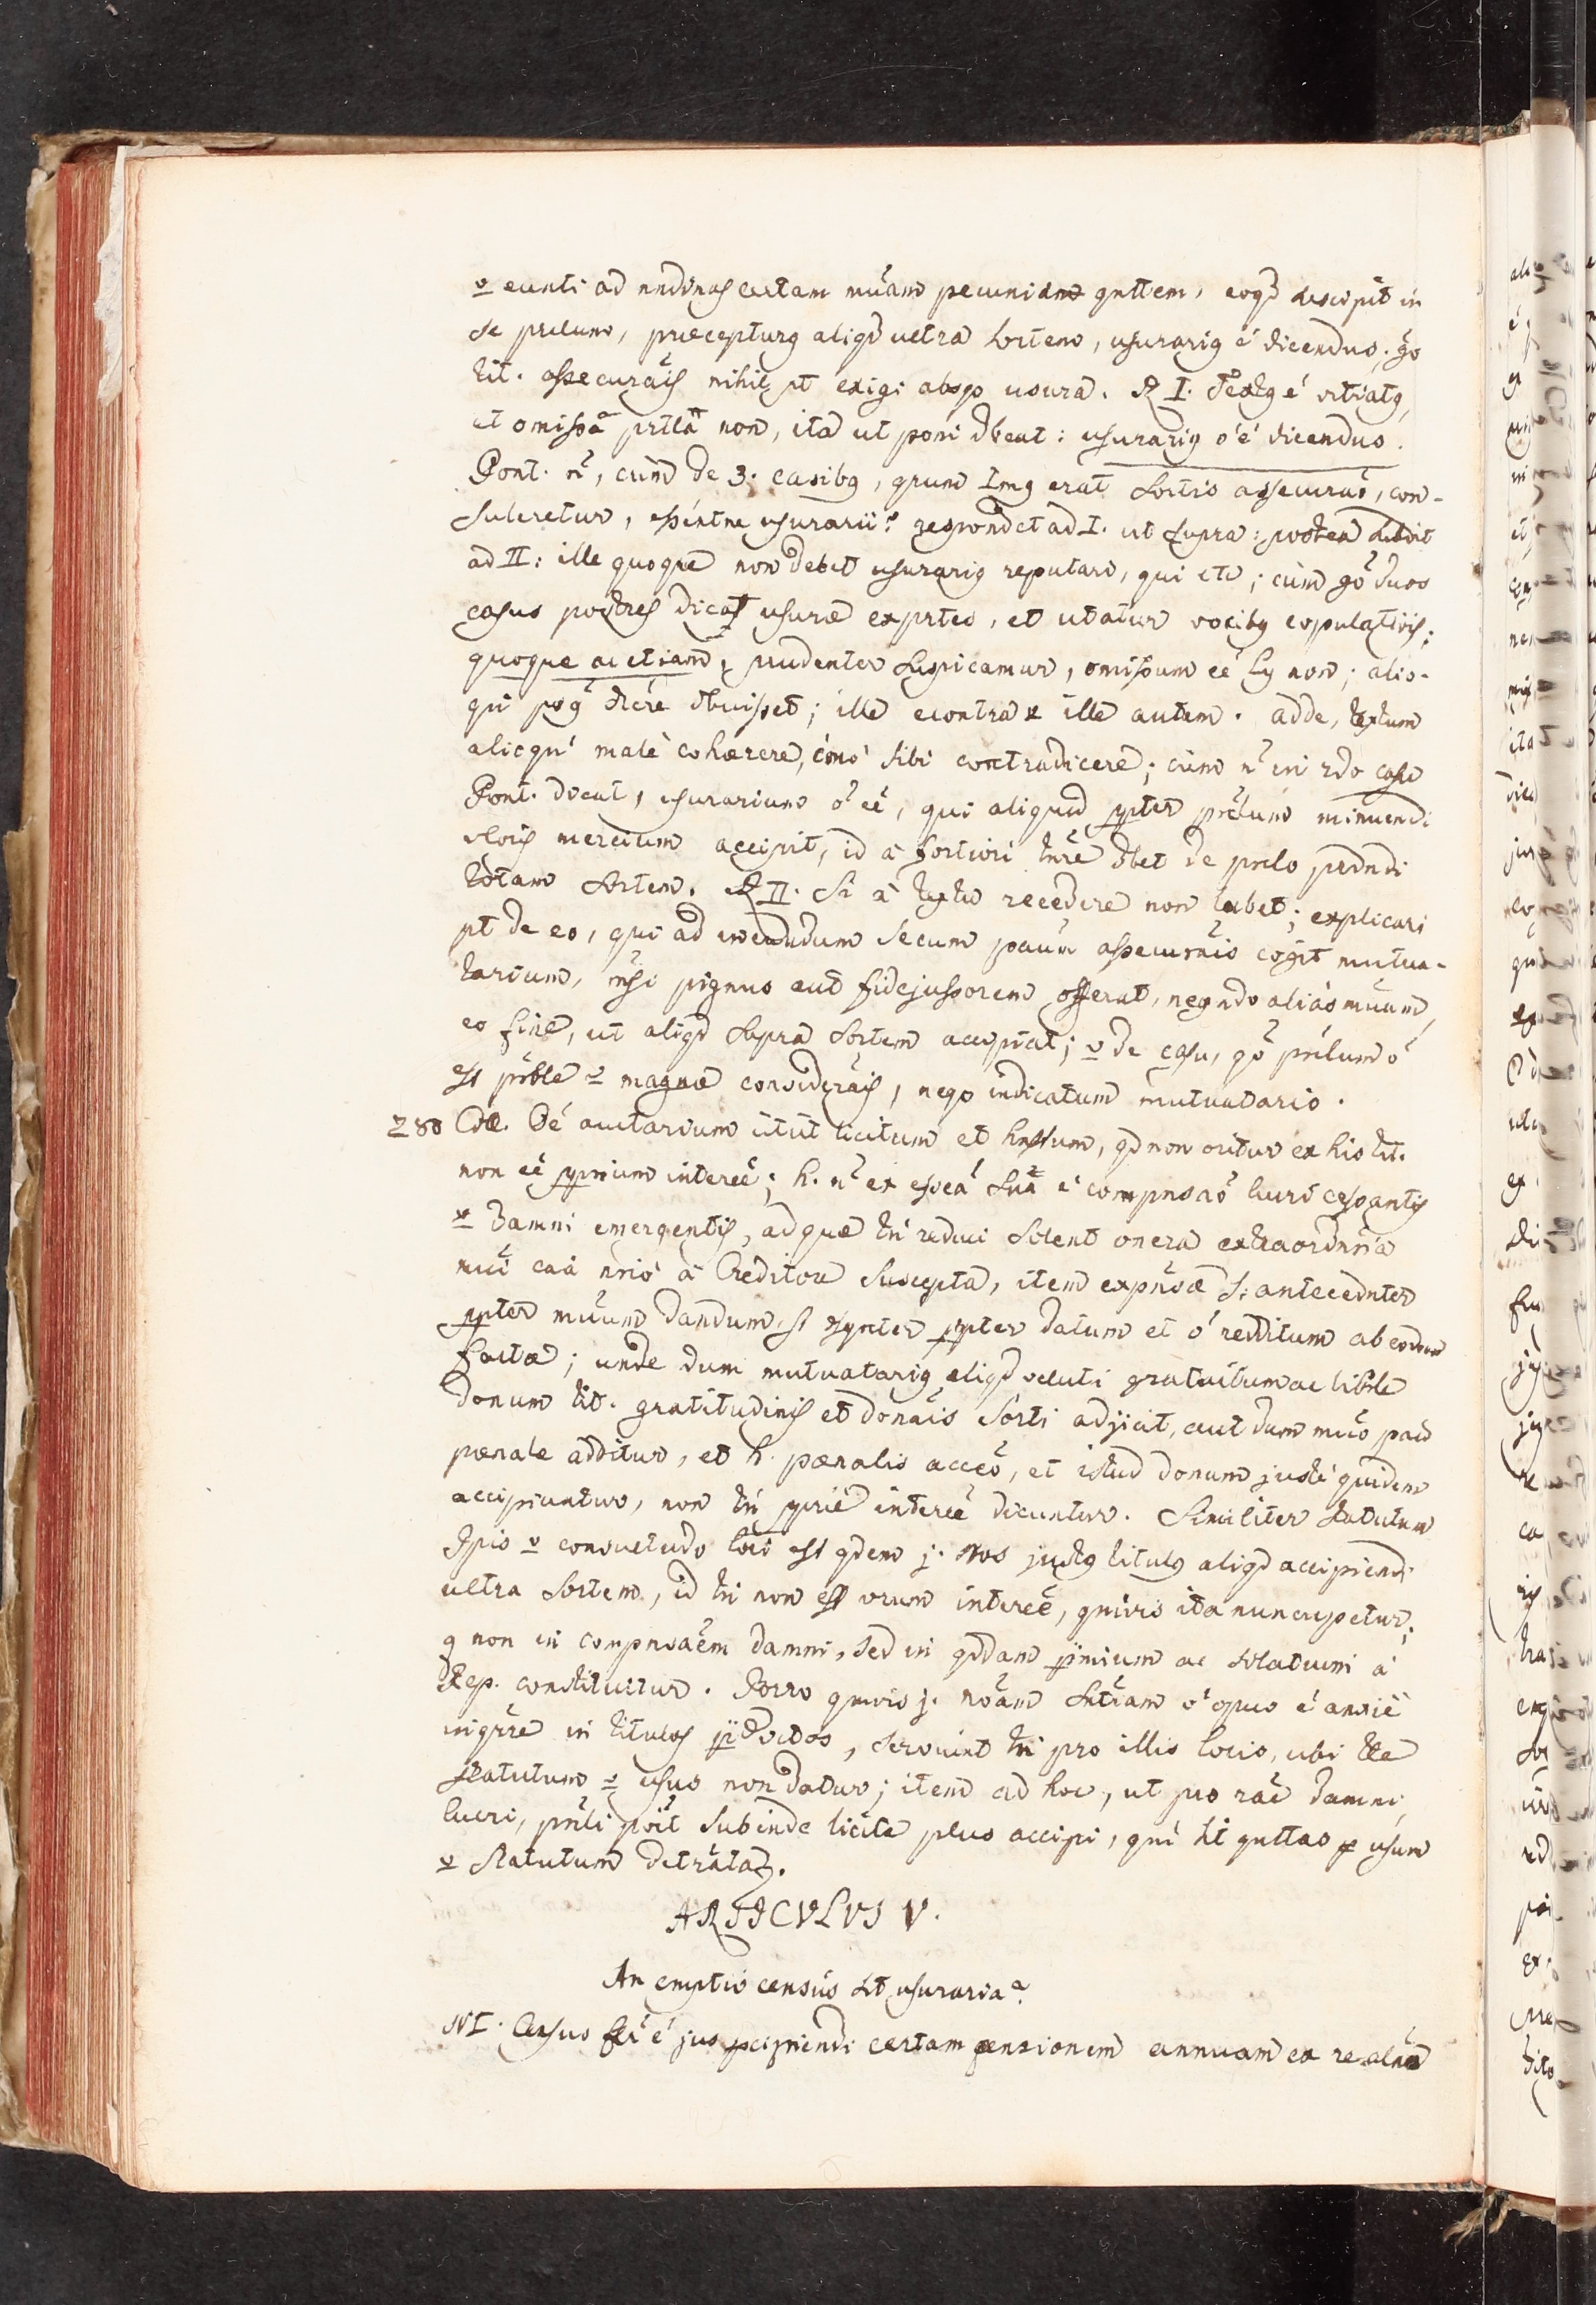 v eunti ad nndinas certam mũam pecuniam qnttem, eoqd suscipit in
se prlum, præcepturg aliqd ultra sortem, usurarig é dicendus; go
tit. assecurãis nihil pt exigi absqo usura. R I. Textg é vitiatg,
et omissa prtla non, ita ut poni dbeat: usurarig o é dicendus.
Pont. n, cùm de 3. casibg, qrum Img erat sortis assecurao, con-
suleretur, essentne usurarii? respondet ad I. ut supra: postea subdit
ad II: ille quoque non debet usurarig reputari, qui etc; cùm go duos
casus postres dicat usuræ exprtes, et utatur vocibg copulativis;
quoque ac etiam, prudenter suspicamur, omissum eé ly non; alio-
qui dicere dbuisset; ille econtra v ille autem. adde, textum
alioqui malè cohærere, imò sibi contradicere; cùm n in 2do casu
Pont. doceat, usurarium o eé, qui aliquid ppter prlum minuendi
vloris mercium accipit, id à fortiori tnre dbet de prlo prdndi
totam sortem. R II. Si à textu recedere non lubet; explicari
pt de eo, qui ad ineundum secum pactum assecurãis cogit mutua-
tarium, nisi pignus aut fidejussorem offerat, negndo alias mũum,
eo fine, ut aliqd supra sortem accipiat; v de casu, qo prlum o
est prble v magnæ considerãis, neqo indicatum mutuatario.
280 Cræ. Dé auctarium utut licitum et hnstum, qd non oritur ex his tit.
non eé pprium intereé; h. n ex essea sua é compnsao lucri cessantis
v damni emergentis, ad quæ tn reduci solent onera extraordnria
mui caa nrio à Creditore suscepta, item expnsæ s. antecednter
ppter mũum dandum, st ppter datum et o redditum ab eodem
factæ; unde dum mutuatarig aliqd veluti gratuitum ac librle
donum tit. gratitudinis et donãis sorti adjicit, aut dum muo pact
pœnale additur, et h. pœnalis acceo, et istud donum justè quidem
accipiuntur, non tn pprié intereé dicuntur. Similiter statutum
Ppis v consuetudo loci est qdem j. nos justg titulg aliqd accipiendi
ultra sortem, id tn non est vrum intereé, qmvis ita nuncupetur;
q non in compnsãem damni, sed in qddam prmium ac solatium à
Rep. constituitur. Porro qmvis j. noam sntiam o opus é anxié
inqrre in titulos prdictos, serviunt tn pro illis locis, ubi tle
statutum v usus non datur; item ad hoc, ut pro rae damni,
lucri, prli poit subinde licitè plus accipi, qm st qnttas p usum
v statutum detrãtaz.
ARTICVLVS V.
An emptio censûs sit usuraria?
NI. Census é jus pcipiendi certam pensionem annuam ex re alna